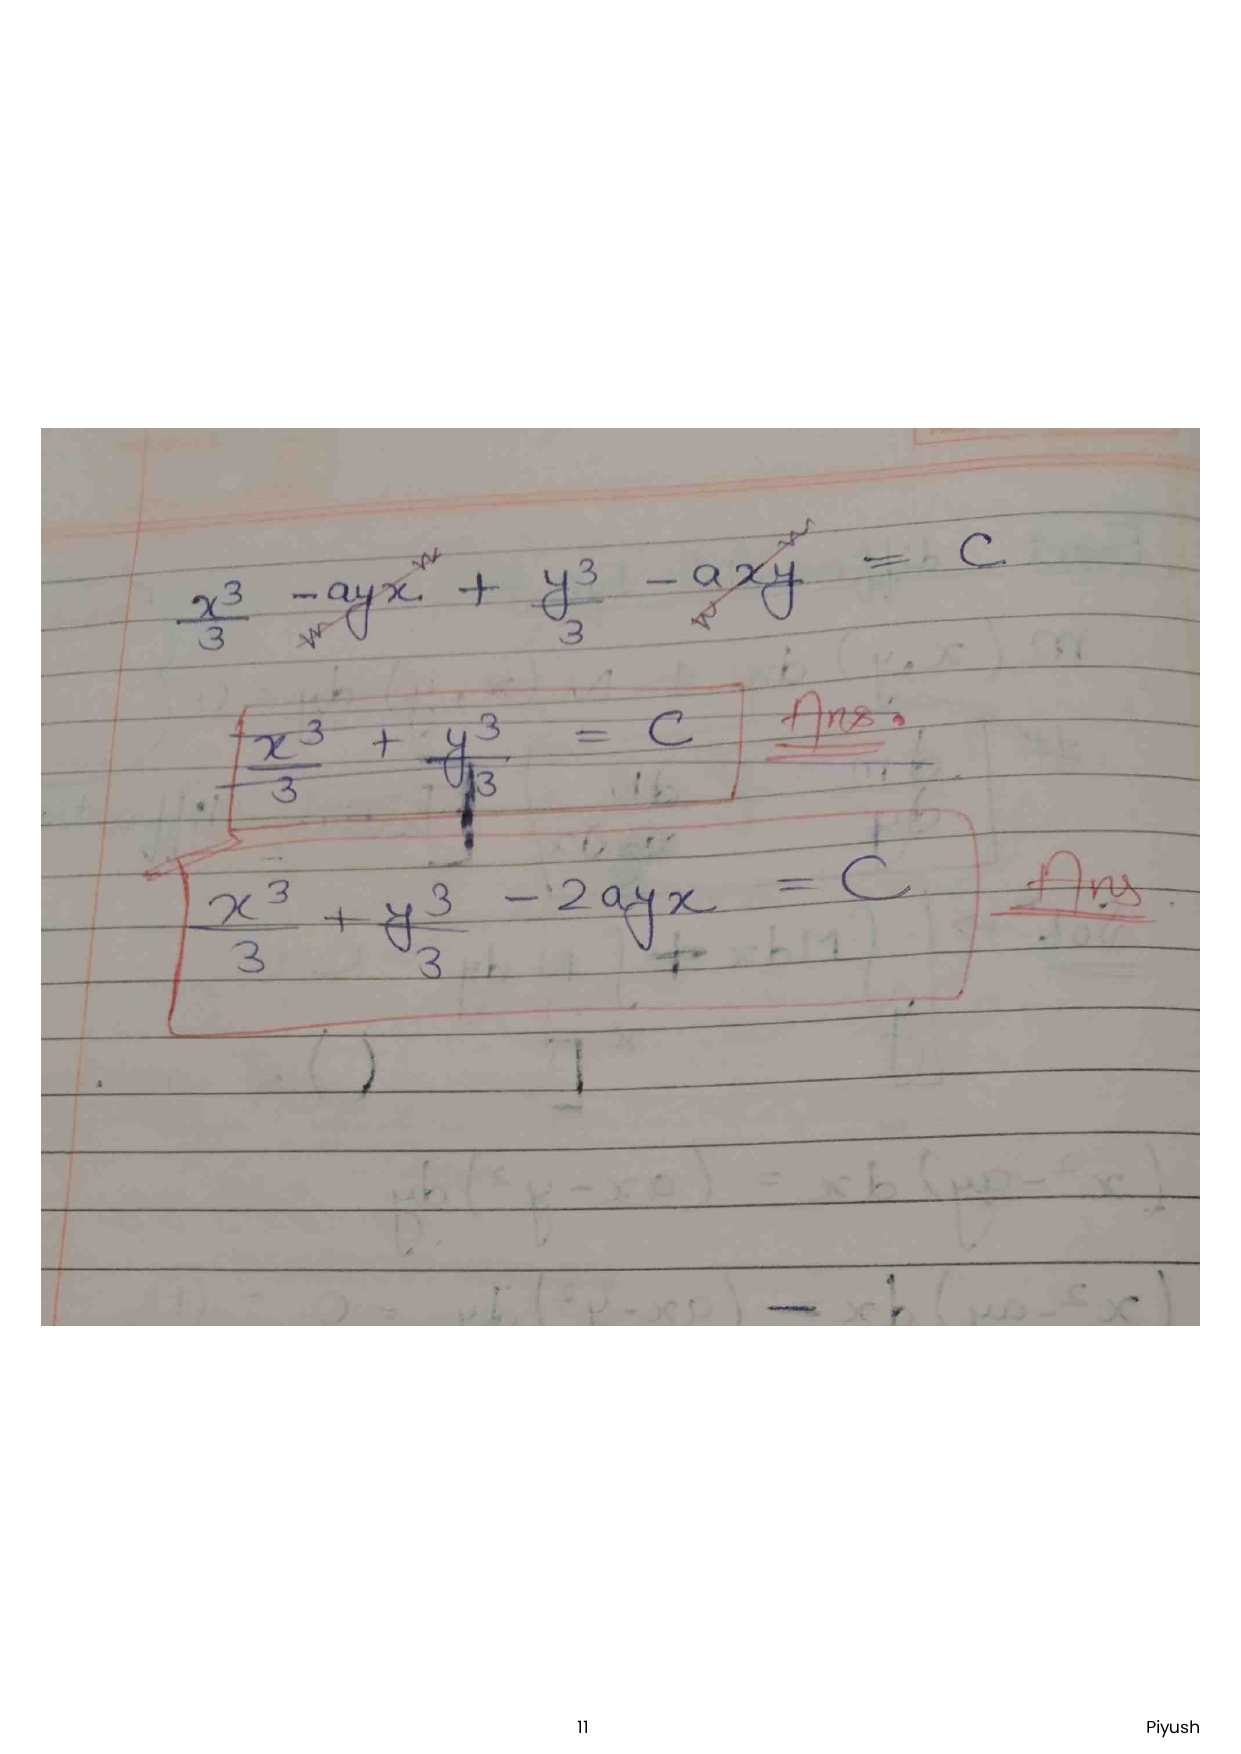 x³/3 - ayx + y³/3 - axy = C
x³/3 + y³/3 = C Ans.
x³/3 + y³/3 - 2ayx = C Ans
11 Piyush